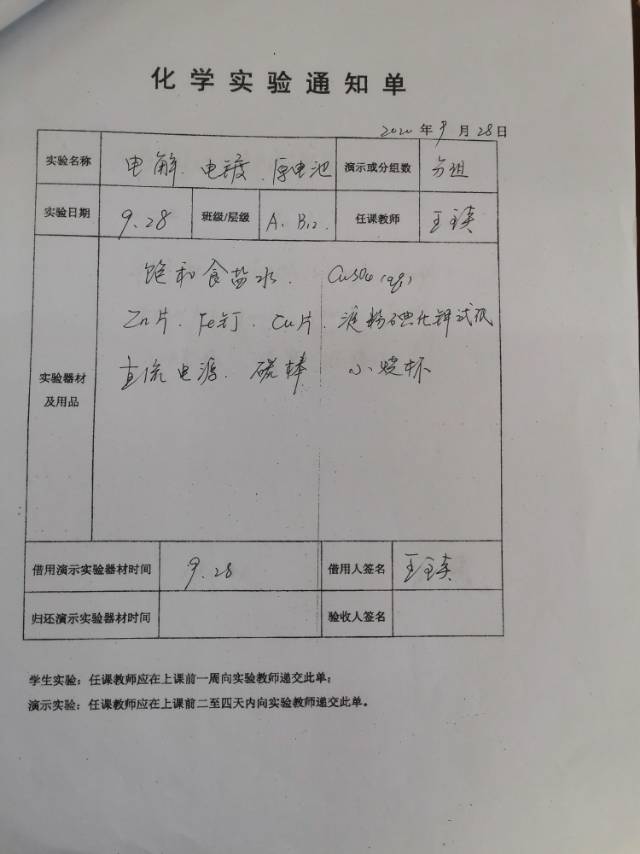 化学实验通知单
2020年9月28日
实验名称 电解、电镀、原电池 演示或分组数 分组
实验日期 9.28 班级/层级 A、B12. 任课教师 王瑛
饱和食盐水、 CuSO4(aq)
Zn片、Fe钉、Cu片、淀粉碘化钾试纸
实验器材及用品 直流电源、碳棒 小烧杯
借用演示实验器材时间 9.28 借用人签名 王瑛
归还演示实验器材时间 验收人签名
学生实验:任课教师应在上课前一周向实验教师递交此单;
演示实验:任课教师应在上课前二至四天内向实验教师递交此单。